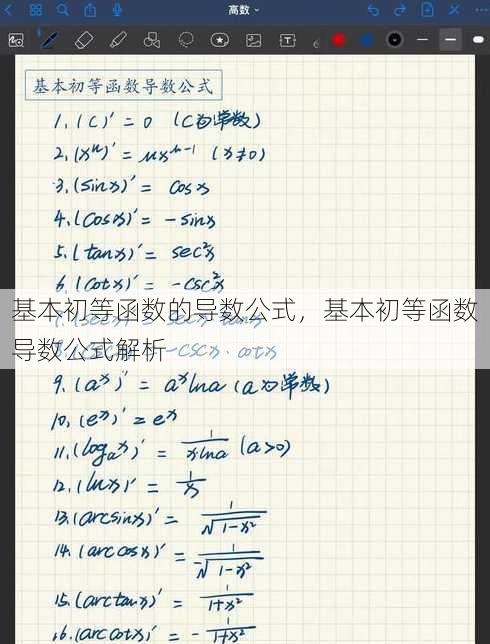 高数
基本初等函数导数公式
1. (C)' = 0 (C为常数)
2. (xⁿ)' = nxⁿ⁻¹ (x≠0)
3. (sinx)' = cosx
4. (cosx)' = -sinx
5. (tanx)' = sec²x
6. (cotx)' = -csc²x
基本初等函数的导数公式，基本初等函数
导数公式解析
-cscx·cotx
9. (aˣ)' = aˣlna (a为常数)
10. (eˣ)' = eˣ
11. (logₐx)' = 1/(xlna) (a>0)
12. (lnx)' = 1/x
13. (arcsinx)' = 1/√(1-x²)
14. (arccosx)' = 1/-√(1-x²)
15. (arctanx)' = 1/(1+x²)
16. (arccotx)' = -1/(1+x²)